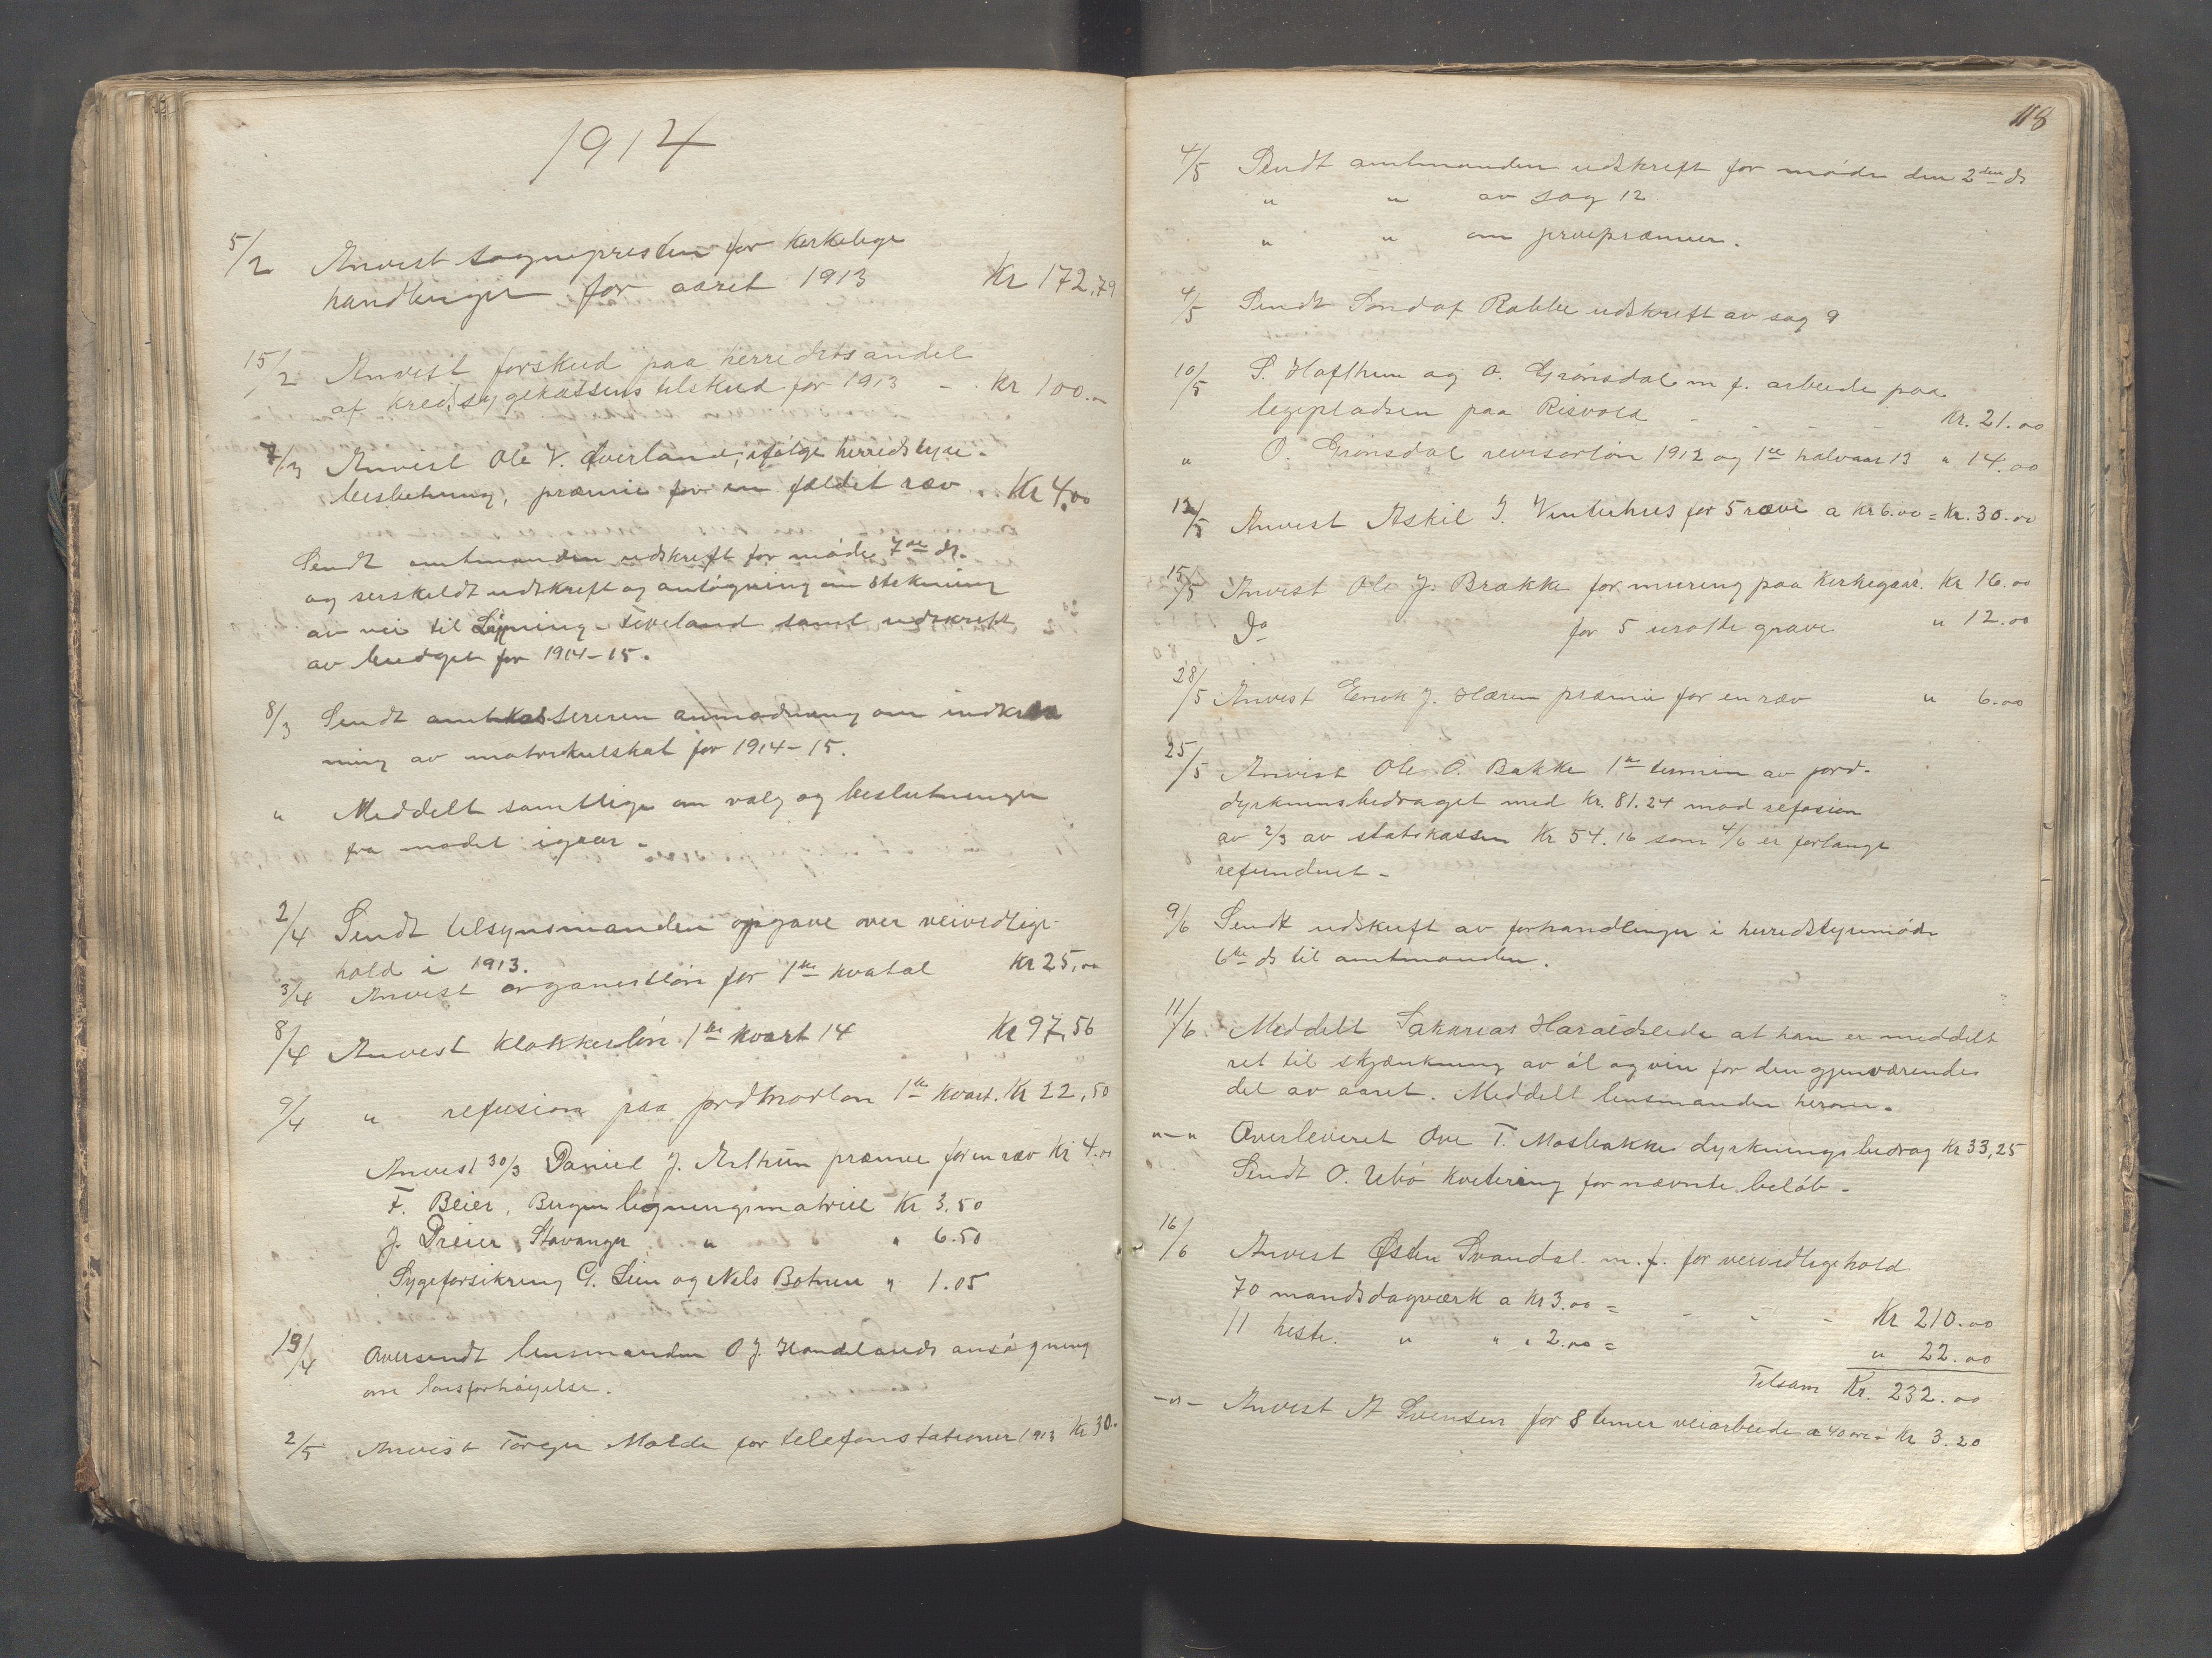 1914
5/2 Anvist sognepresten for kirkelige
handlinger for aaret 1913 Kr 172,79
15/2 Anvist forskud paa herredets andel
af kredssygekassens tilskud for 1913 - Kr 100.-
7/3 Anvist Ole V. Överland, ifølge herredstyre-
beslutning, præmie for en fældet ræv. Kr 4,00
Sendt amtmanden udskrift for møde 7de ds.
og serskildt udskrift og ansögning om stekning
av vei til - Teveland samt udskrift
av budget for 1914-15.
8/3 Sendt amtkassereren anmodning om indkræv
ning av matrikulskat for 1914-15.
" Meddelt samtlige om valg og beslutninger
fra mødet igaar.
2/4 Sendt tilsynsmanden opgave over veivedlige-
hold i 1913.
3/4 Anvist organistløn for 1ste kvatal Kr 25,00
8/4 Anvist klokkerløn 1ste kvart 14 Kr 97,56
9/4 " refusion paa jordmorløn 1ste kvart. Kr 22,50
Anvist 30/3 Daniel J. Arthun præmie for en ræv Kr 4.00
F. Beier, Bergen ligningsmatriel Kr 3.50
J. Dreier, Stavanger " " 6.50
Sygeforsikring G. Lien og Nils Botnen " 1.05
19/4 Oversendt lensmanden O J. Handelands ansögning
om lønsforhøyelse.
2/5 Anvist Torger Molde for telefonstationer 1913 Kr 30.-
118
4/5 Sendt amtmanden udskrift for møde den 2den ds
" " av sag 12
" " om jervepræmier.
4/5 Sendt Rabbe udskrift av sag 9
10/5 S. Hafthun og O. Grønsdal m f. arbeide paa
legepladsen paa Risvold - - - - Kr. 21.00
" O. Grønsdal revisorløn 1912 og 1ste halvaar 13 " 14.00
12/5 Anvist Askil J. Vinterhus for 5 ræve a kr 6.00 = Kr. 30.00
15/5 Anvist Ole J. Brække for muring paa kirkegaar. Kr 16.00
Do for 5 grave " 12.00
28/5 Anvist Erik J. Hæren præmie for en ræv " 6.00
25/5 Anvist Ole O. Bakke 1ste termin av jord-
dyrkninsbedraget med Kr. 81.24 mod refusion
av 2/3 av statskassen Kr 54.16 som 4/6 er forlangt
refunderet -
9/6 Sendt udskrift av forhandlinger i herredstyremøde
6te ds til amtmanden.
11/6 Meddelt Sakarias Haraldseide at han er meddelt
ret til skjænkning av øl og vin for den gjenværende
del av aaret. Meddelt lensmanden herom.
"-" Overleveret Ove T. Mosbakke dyrkningsbedrag Kr 33,25
Sendt O. Ubø kvitering for nævnte beløb -
16/6 Anvist Østen Svandal m. f. for veivedligehold
70 mandsdagværk a Kr 3.00 = - - - Kr 210.00
11 heste. " " " 2.00 = " 22.00
Tilsam Kr. 232.00
-"- Anvist A Svensen for 8 timer veiarbeide a 40 øre = Kr 3.20